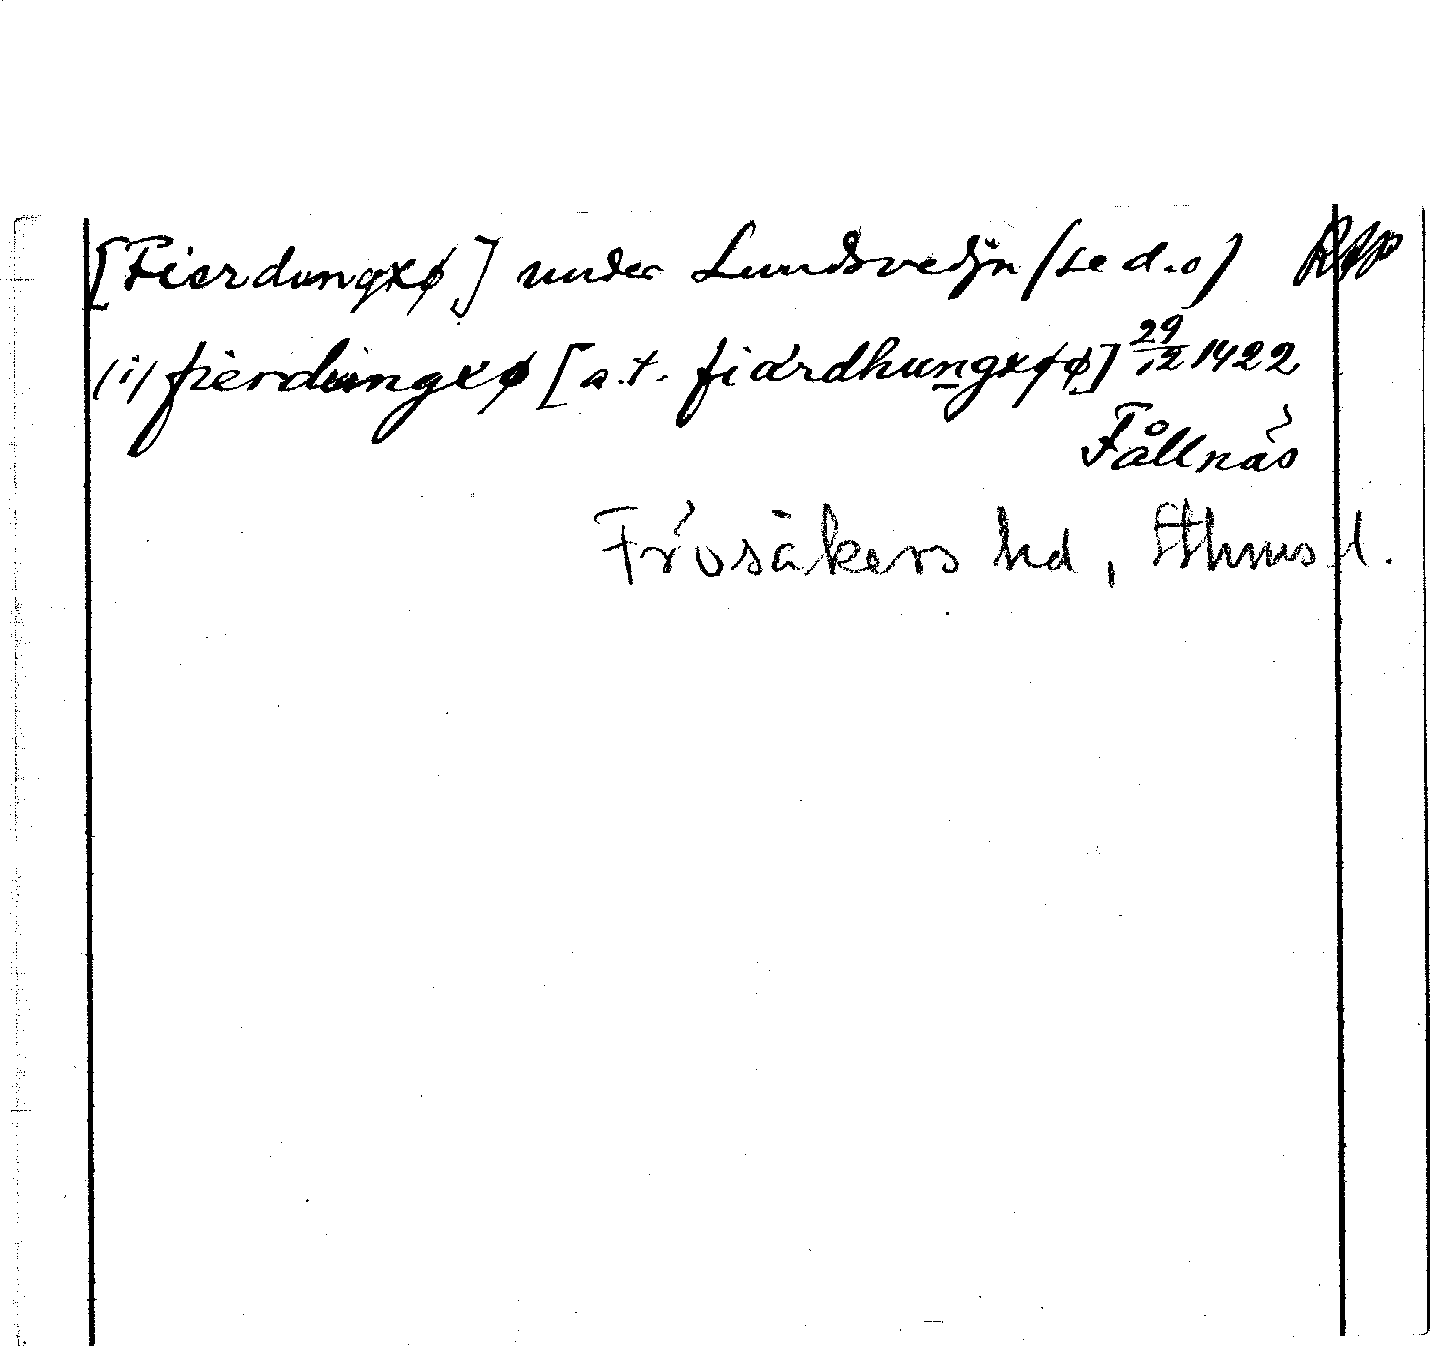 [Fierdungxø] under Lundsvedjn (se d.o)
(i) fierdungxø [a.t. fiärdhungxøø] 29/12 1422
Fållnäs
Frösåkers hd, Sthms l.